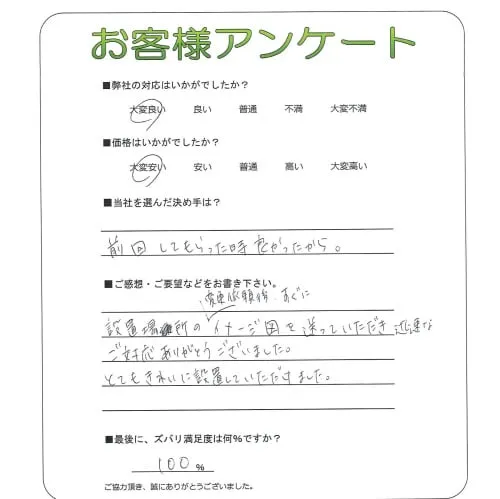 お客様アンケート
■弊社の対応はいかがでしたか?
大変良い 良い 普通 不満 大変不満
■価格はいかがでしたか?
大変安い 安い 普通 高い 大変高い
■当社を選んだ決め手は?
前回してもらった時良かったから。
■ご感想・ご要望などをお書き下さい。
変更依頼後、すぐに
設置場所のイメージ図を送っていただき迅速な
ご対応ありがとうございました。
とてもきれいに設置していただけました。
■最後に、ズバリ満足度は何%ですか?
100%
ご協力頂き、誠にありがとうございました。